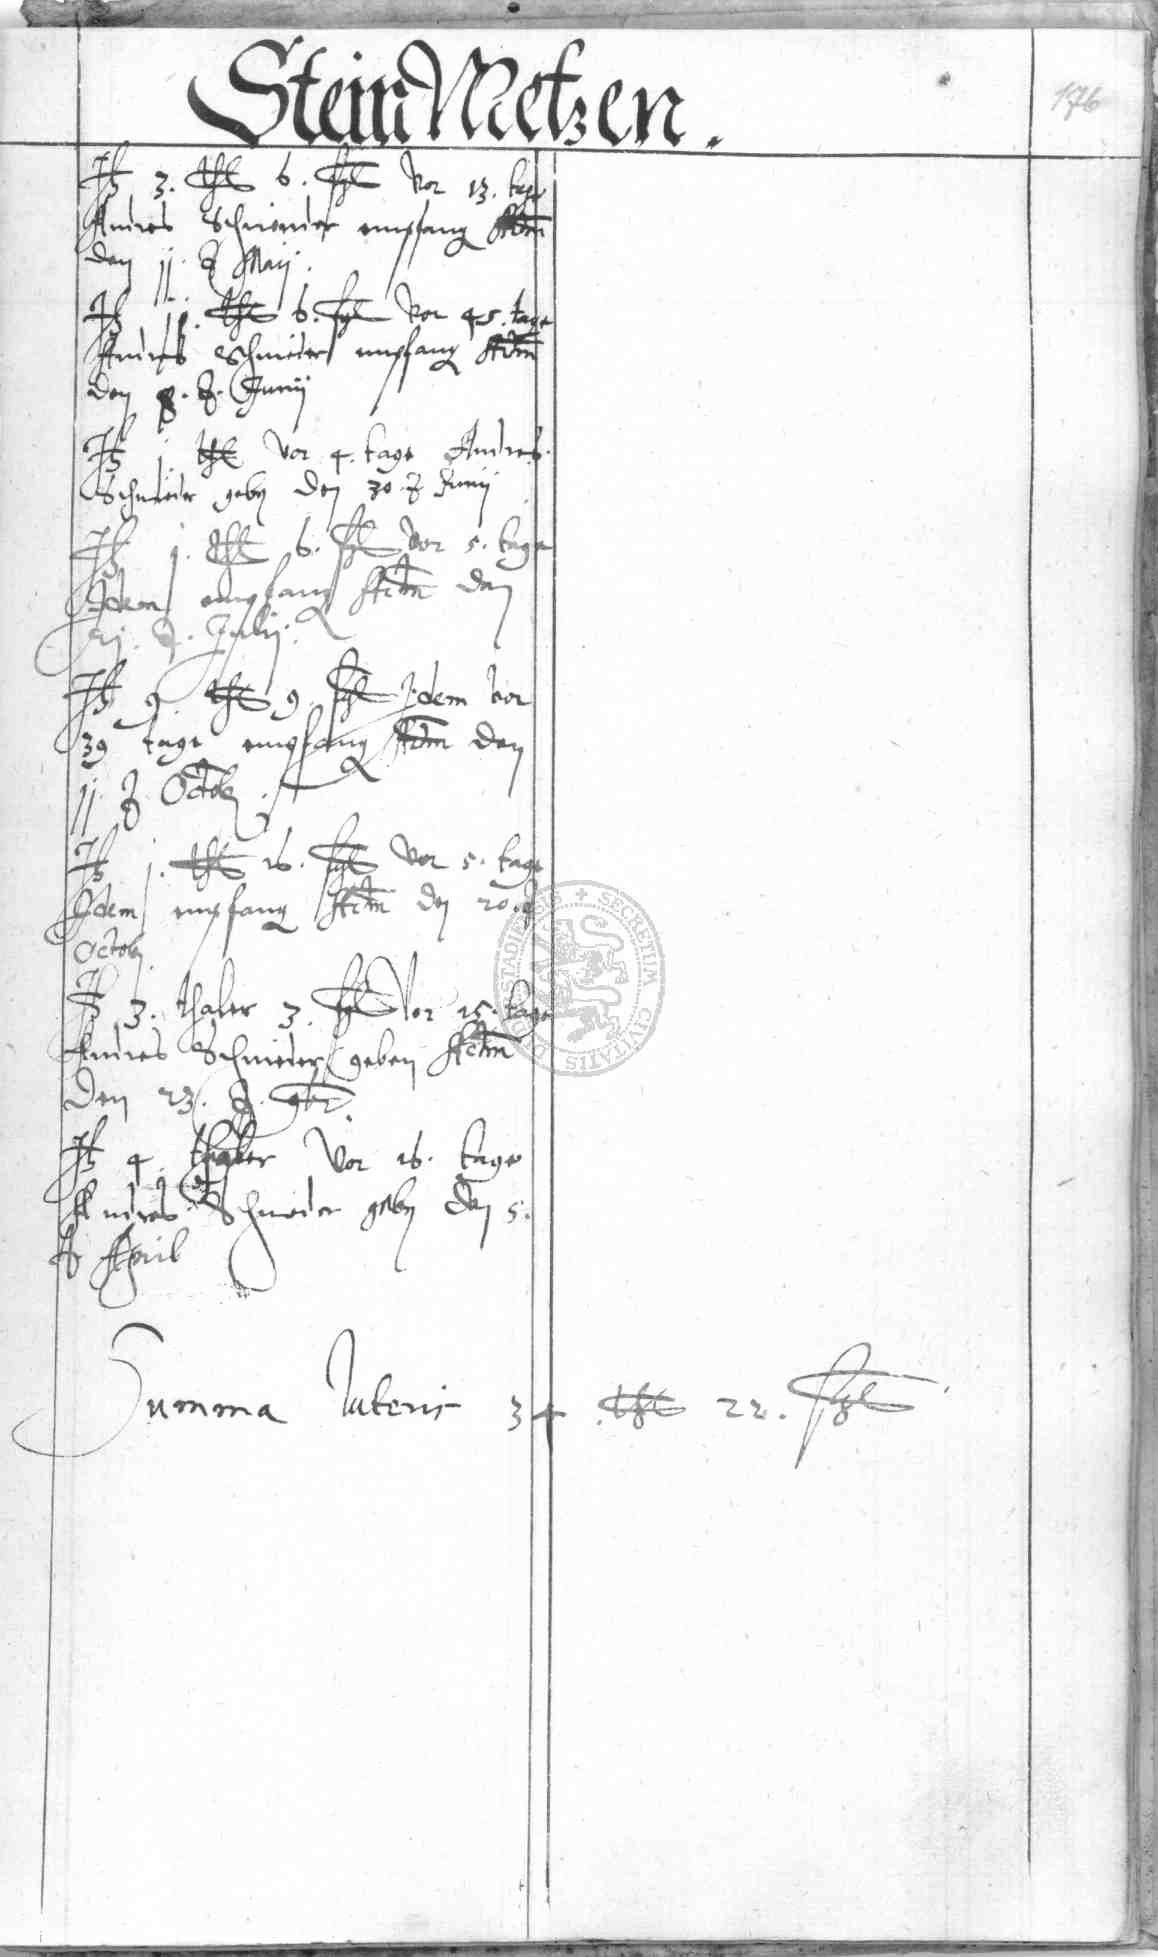 SteinMetzen.
176
It 3. thl 6. ssl vor 13. tage
Andres Schnieder empfang Actum
den 11. d Maij.
It 11. thl 6. ssl vor 45. tage
Andres Schnieder empfang Actum
den 8. d. Junij
It 1 thl vor 4. tage Andres
Schnieder geben den 30. d Junij
It 1. thl 6. ssl vor 5. tage
Idem empfang Actum den
d. Julij.
It 9. thl 9 ssl Idem vor
39 tage empfang Actum den
11 d Octob.
It 1. thl 16. ssl vor 5. tage
Idem empfang Actum den 20. d
Octob.
It 3. thaler 3. ssl vor 15. tage
Andres Schnieder geben Actum
den 23. d. 9br.
It 4. thaler vor 16. tage
Andres Schnieder geben den 5.
d April
Summa lateris 34 thl 22. ssl
SECRETUM CIVITATIS STADIENSIS